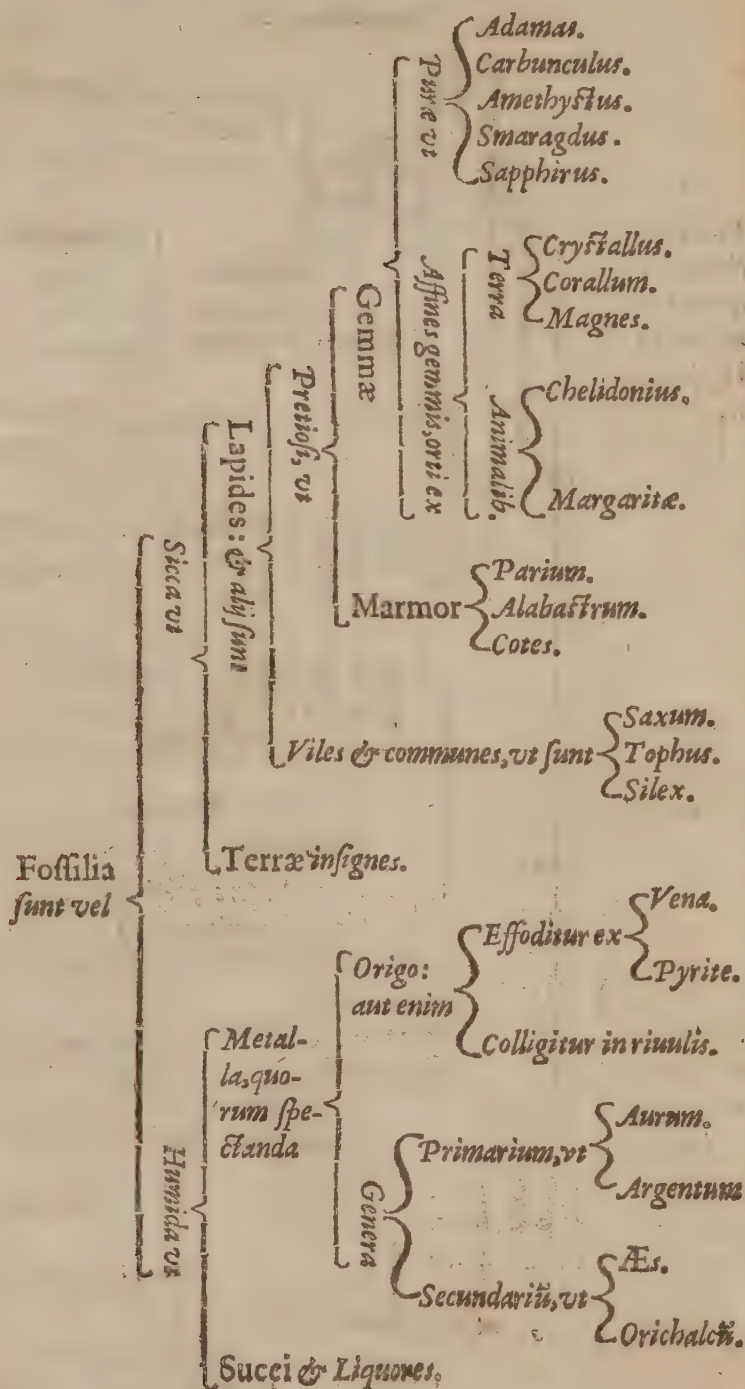 Fossilia
sunt vel
Sicca vt
Lapides: & alij sunt
Pretiosi, vt
Gemmæ
Puræ vt
Adamas.
Carbunculus.
Amethystus.
Smaragdus.
Sapphirus.
Affines gemmis, orti ex
Terra
Crystallus.
Corallum.
Magnes.
Animalib.
Chelidonius.
Margaritæ.
Marmor
Parium.
Alabastrum.
Cotes.
Viles & communes, vt sunt
Saxum.
Tophus.
Silex.
Terræ insignes.
Humida vt
Metal-
la, quo-
rum spe-
ctanda
Origo:
aut enim
Effoditur ex
Vena.
Pyrite.
Colligitur in riuulis.
Genera
Primarium, vt
Aurum.
Argentum
Secundariũ, vt
Æs.
Orichalcũ.
Succi & Liquores.